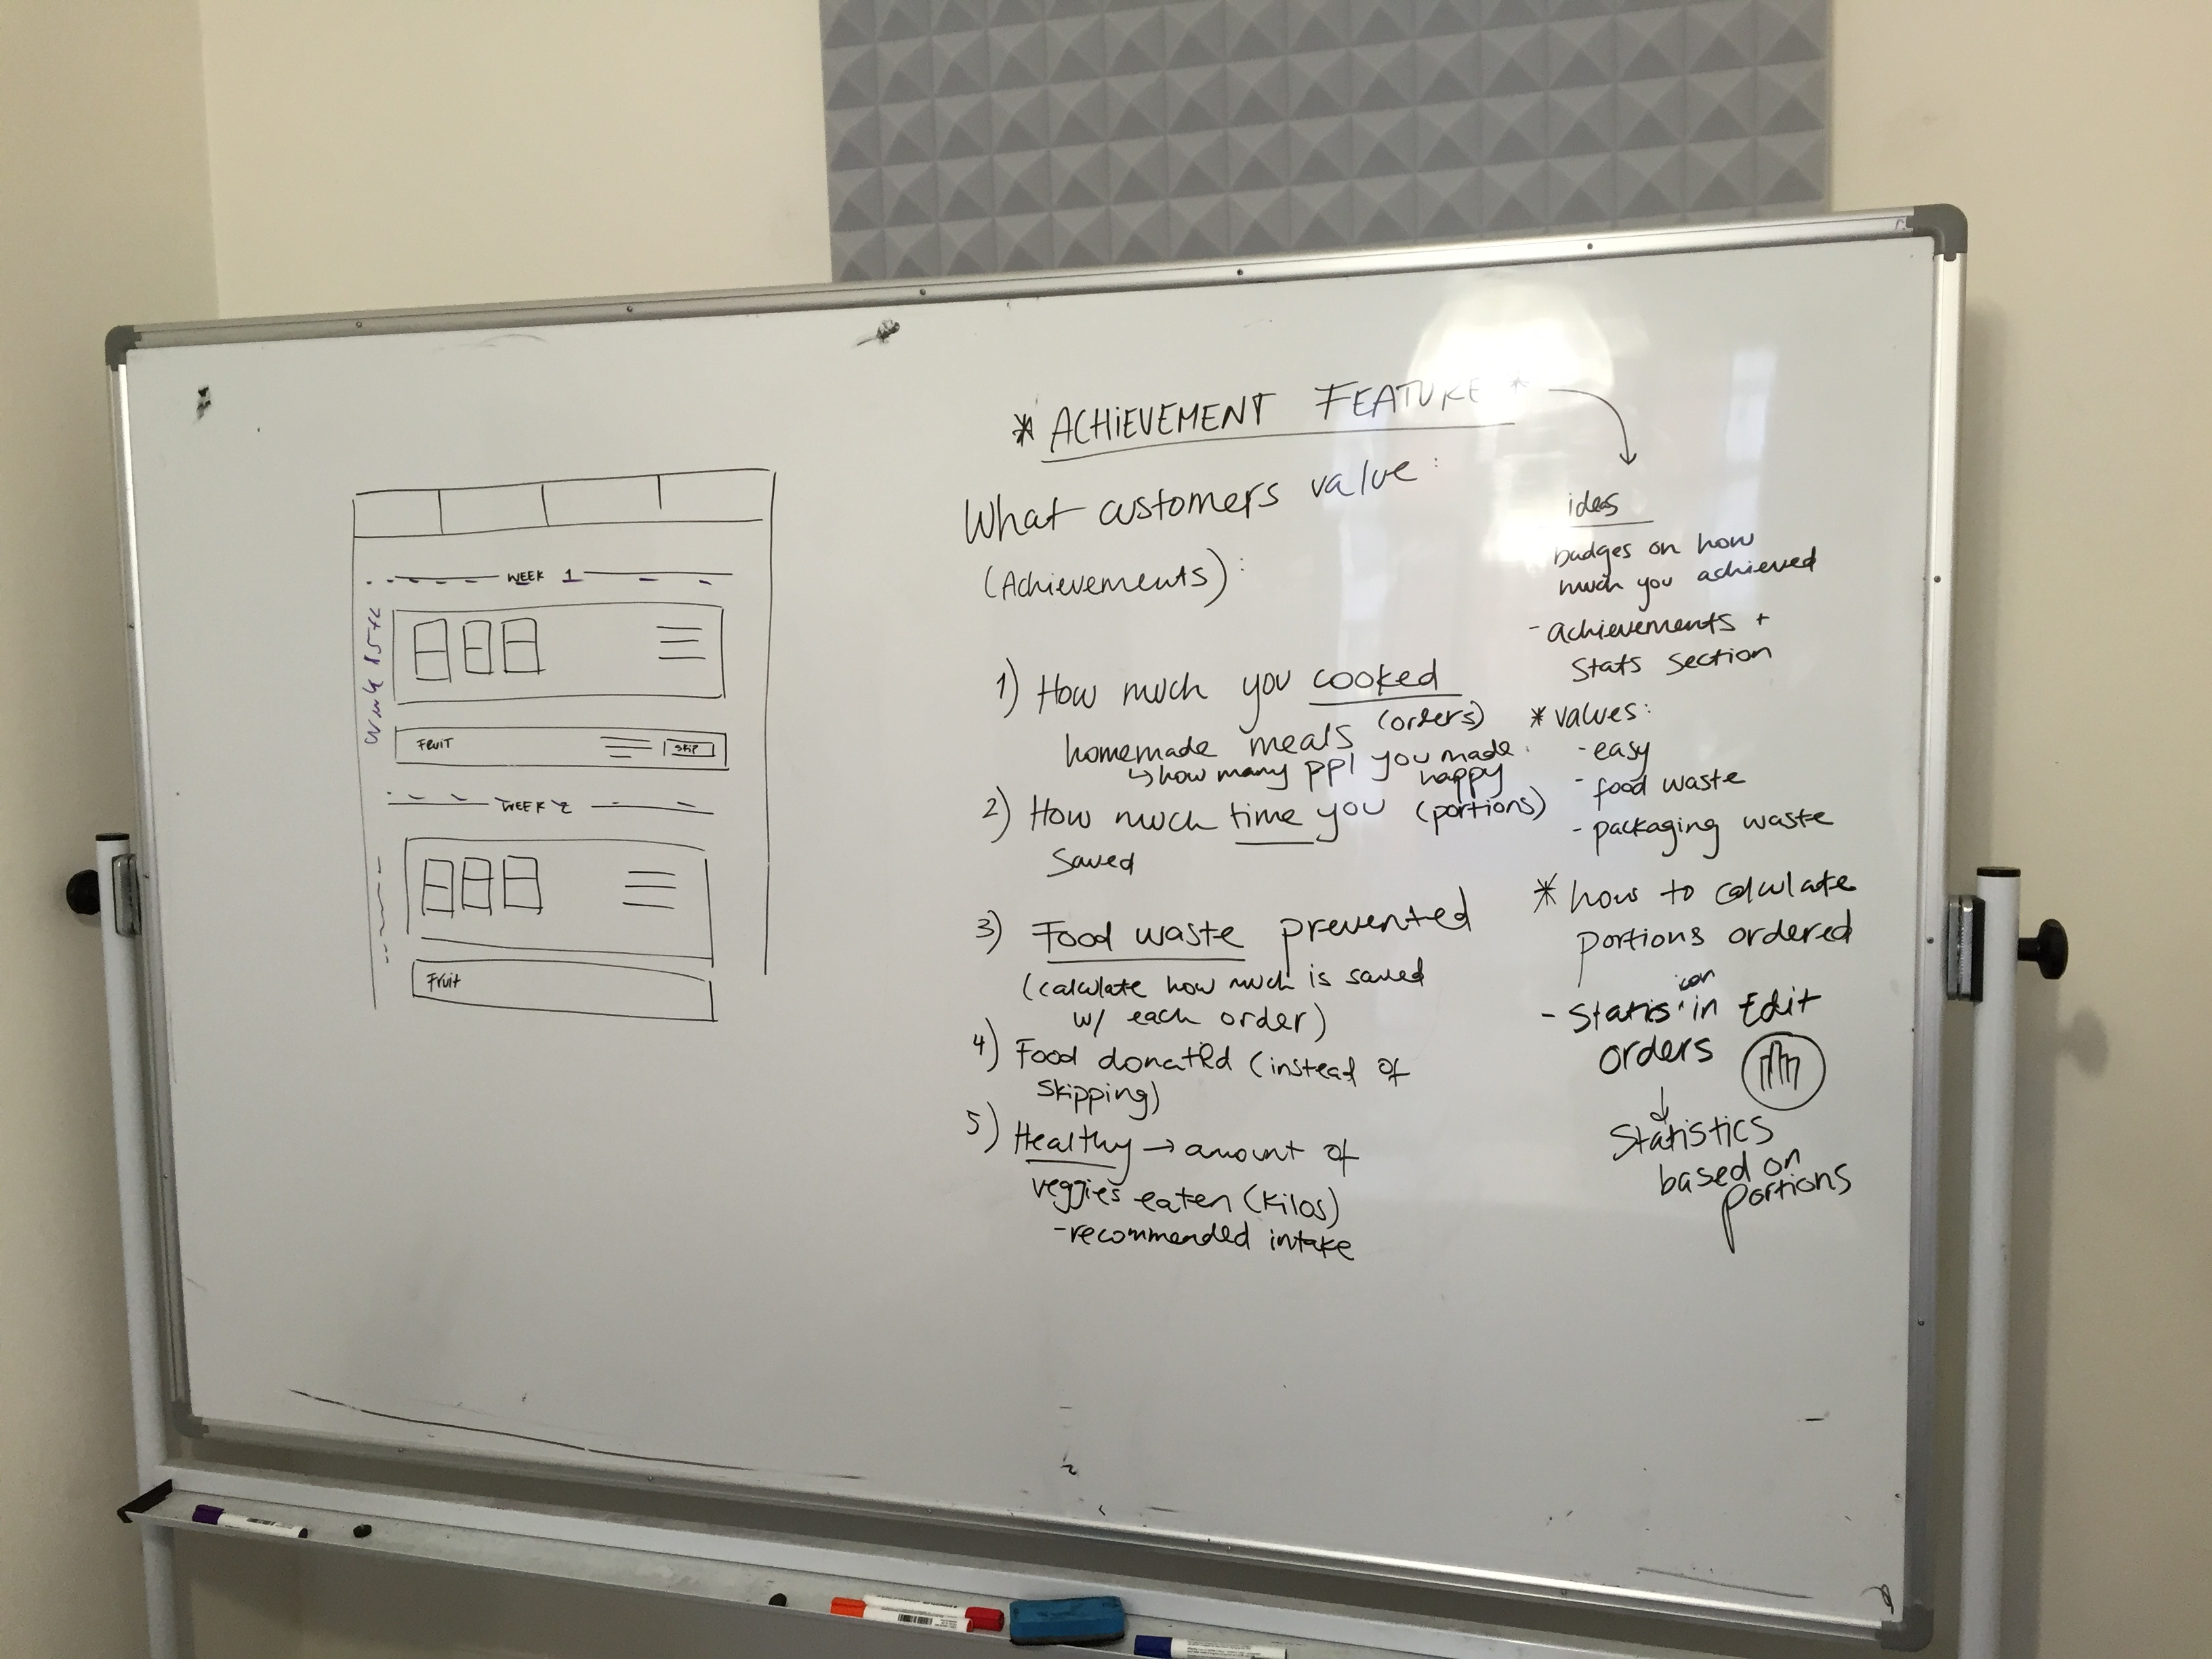 WEEK 1
FRUIT
Skip
WEEK 2
Fruit
* ACHiEVEMENT FEATURE *
What customers value:
(Achievements):
1) How much you cooked
homemade meals (orders)
↳ how many ppl you made
happy
(portions)
2) How much time you
saved
3) Food waste prevented
(calculate how much is saved
w/ each order)
4) Food donated (instead of
skipping)
5) Healthy → amount of
veggies eaten (kilos)
- recommended intake
ideas
badges on how
much you achieved
- achievements +
stats section
* values:
- easy
- food waste
- packaging waste
* how to calculate
portions ordered
icon
- Statis in Edit
orders
↓
Statistics
based on
portions